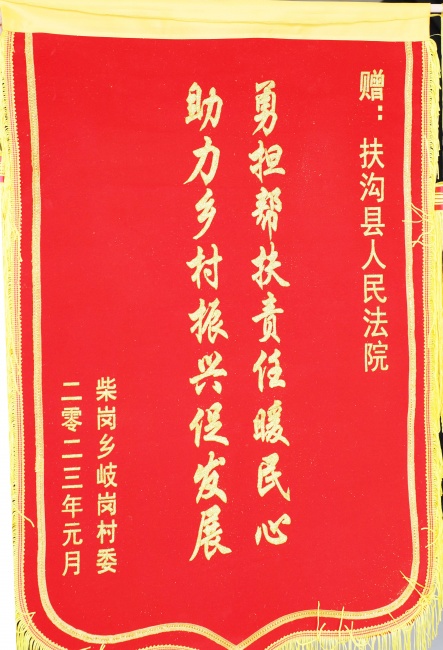 赠：扶沟县人民法院
勇担帮扶责任暖民心
助力乡村振兴促发展
柴岗乡岐岗村委
二零二三年元月